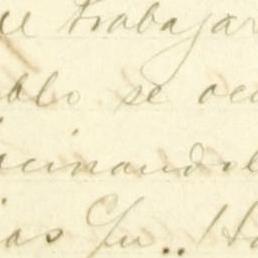 trabajar
blo se
cinandol
ias C/u.. Ha